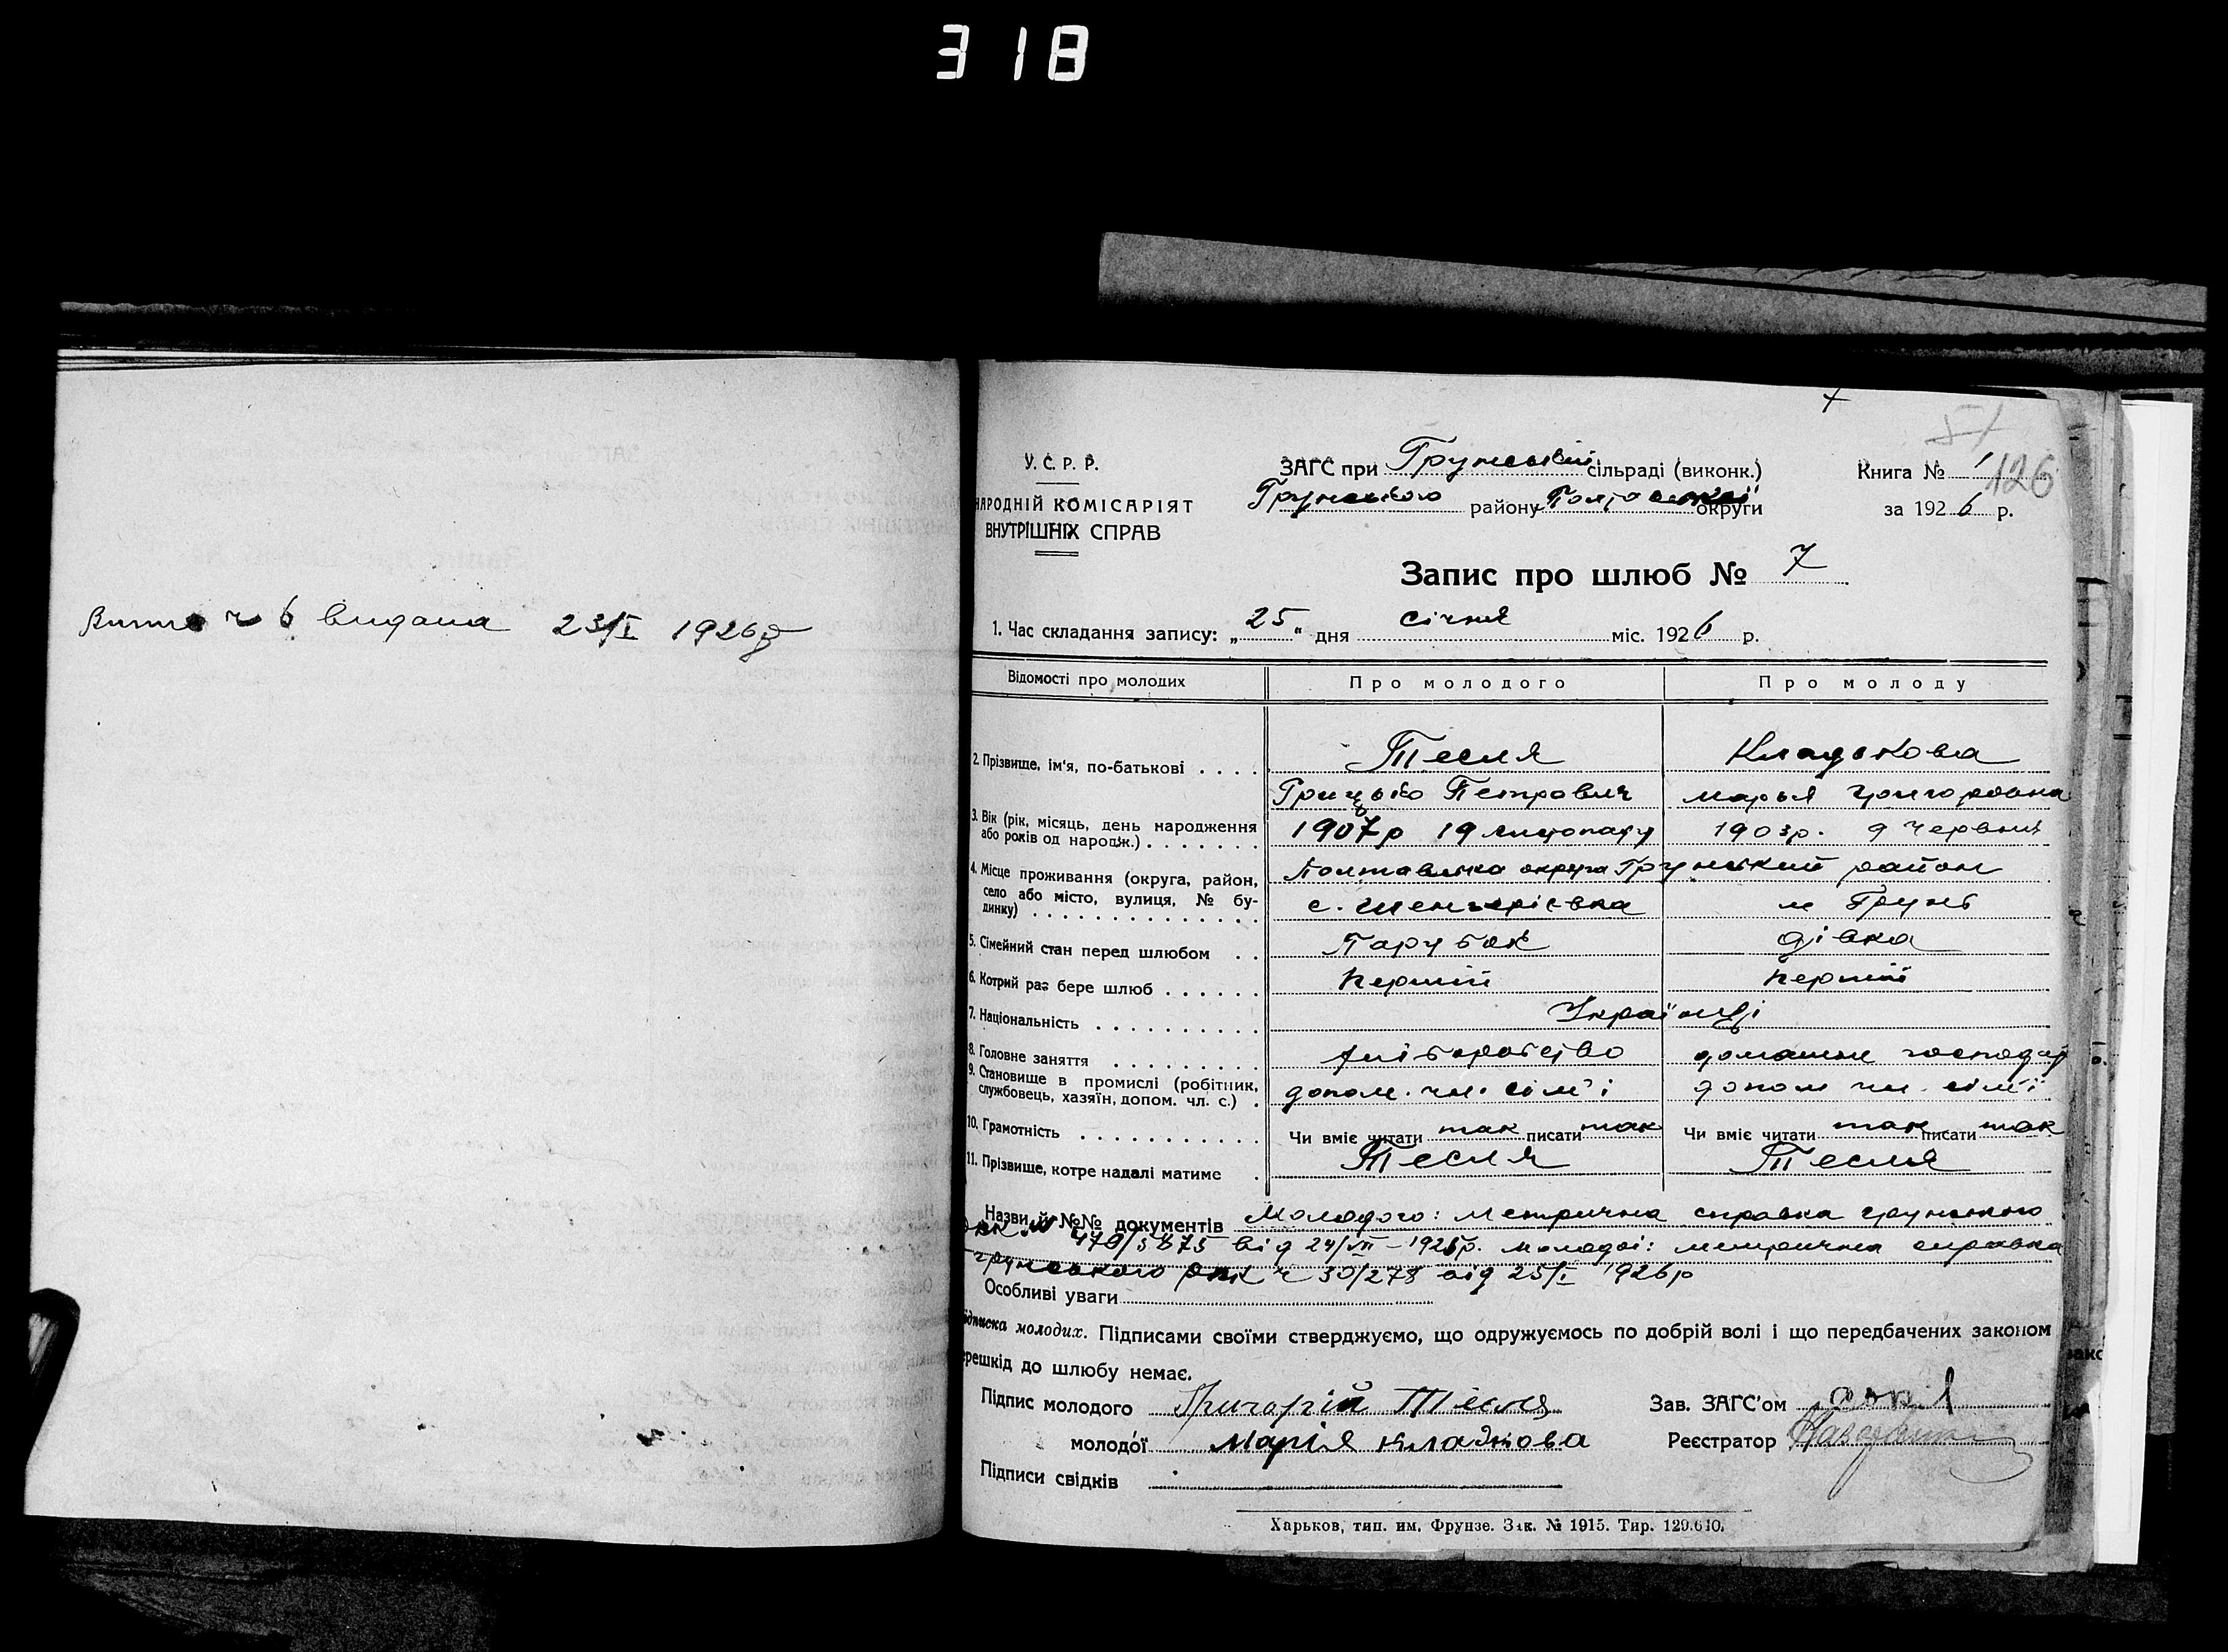 318
Випис ч 6 видана 23/I 1926р
У. С. Р. Р.
НАРОДНІЙ КОМІСАРІЯТ
ВНУТРІШНІХ СПРАВ
ЗАГС при Грунській сільраді (виконк.)
Грунського району Полтавської округи
Книга № 1
126
за 1926 р.
Запис про шлюб № 7
1. Час складання запису: „25“ дня січня міс. 1926 р.
Відомості про молодих Про молодого Про молоду
2. Прізвище, ім'я, по-батькові . . . . Тесля Кладькова
Грицько Петрович Марья Григоровна
3. Вік (рік, місяць, день народження або років од народж.) . . . . . . . 1907р 19 листопаду 1903р. 9 червня
4. Місце проживання (округа, район, село або місто, вулиця, № будинку) . . . . . . . . . . . . . . Полтавська округа Грунський район
с. Шенгерієвка м Грунь
5. Сімейний стан перед шлюбом . . Парубок дівка
6. Котрий раз бере шлюб . . . . . . перший перший
7. Національність . . . . . . . . . . Українці
8. Головне заняття . . . . . . . . . хліборобство домашнє господар
9. Становище в промислі (робітник, службовець, хазяїн, допом. чл. с.) . допом. чл. сім'ї допом чл. сім'ї
10. Грамотність . . . . . . . . . . . Чи вміє читати так писати так Чи вміє читати так писати так
11. Прізвище, котре надалі матиме . Тесля Тесля
Назви й №№ документів Молодого: метрична справка грунського
РВК № 470/5875 від 24/VII – 1925р. молодої: метрична справка
грунського РВК ч 30/278 від 25/I 1926р
Особливі уваги
Підписка молодих. Підписами своїми стверджуємо, що одружуємось по добрій волі і що передбачених законом
перешкід до шлюбу немає.
Підпис молодого Григорій Тесля Зав. ЗАГС'ом
молодої Марія Кладкова Реєстратор
Підписи свідків
Харьков, тип. им. Фрунзе. Зак. № 1915. Тир. 129.610.